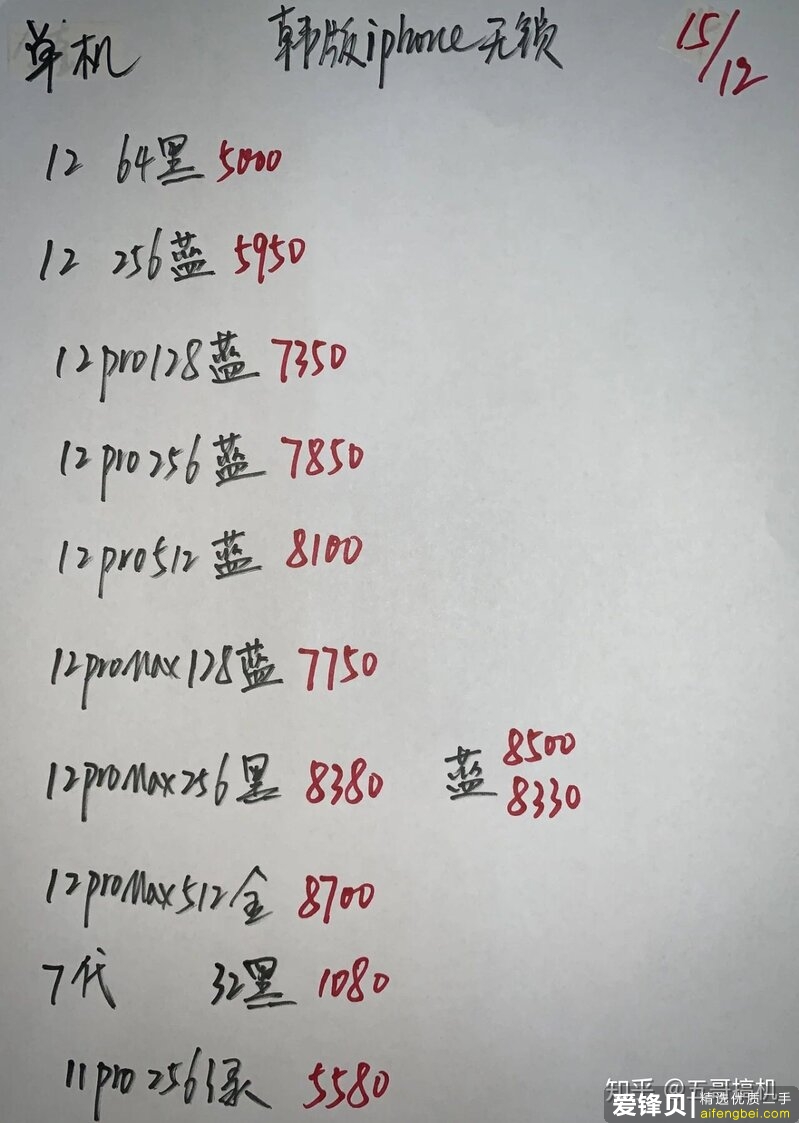 单机 韩版iphone无锁 15/12
12 64黑 5000
12 256蓝 5950
12pro128蓝 7350
12pro256蓝 7850
12pro512蓝 8100
12proMax128蓝 7750
12proMax256黑 8380 蓝 8500
8330
12proMax512金 8700
7代 32黑 1080
11pro256绿 5580
知乎 @五哥搞机
爱锋贝 精选优质二手
aifengbei.com